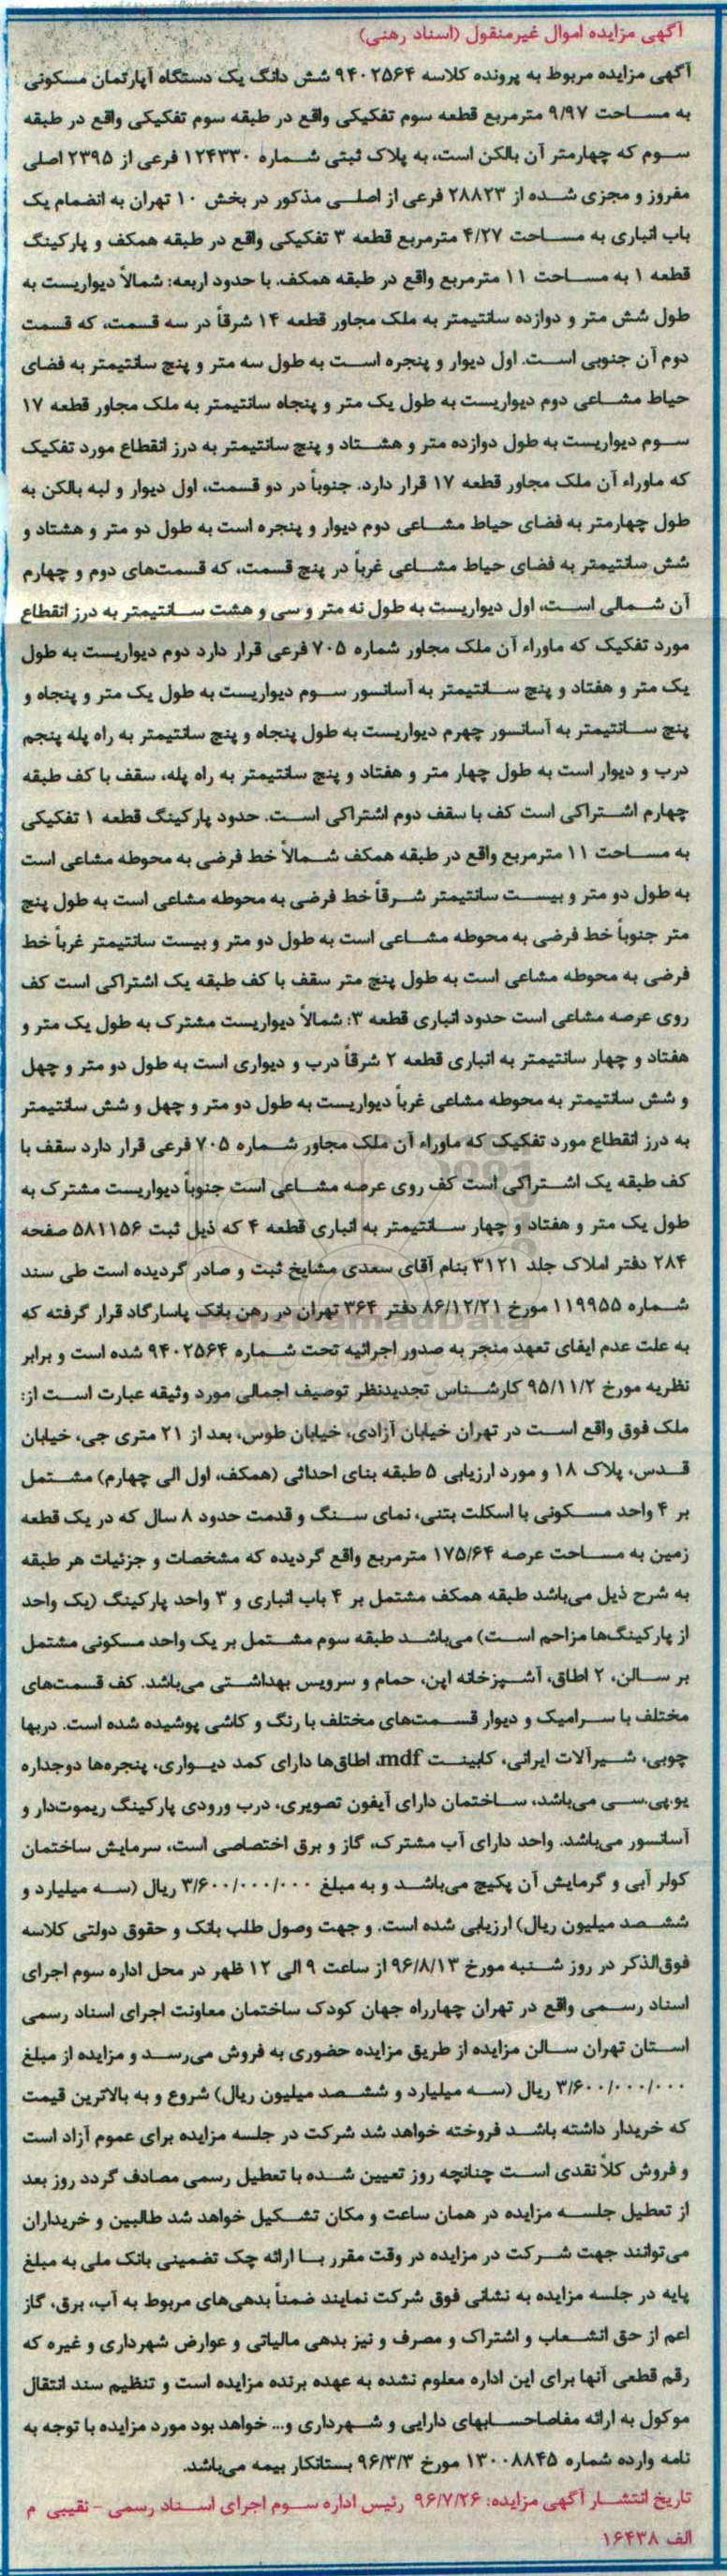 آگهی مزایده اموال غیرمنقول (اسناد رهنی)
آگهی مزایده مربوط به پرونده کلاسه ۹۴۰۲۵۶۴ شش دانگ یک دستگاه آپارتمان مسکونی
به مساحت ۹/۹۷ مترمربع قطعه سوم تفکیکی واقع در طبقه سوم تفکیکی واقع در طبقه
سوم که چهارمتر آن بالکن است، به پلاک ثبتی شماره ۱۲۴۳۳۰ فرعی از ۲۳۹۵ اصلی
مفروز و مجزی شده از ۲۸۸۲۳ فرعی از اصلی مذکور در بخش ۱۰ تهران به انضمام یک
باب انباری به مساحت ۴/۲۷ مترمربع قطعه ۳ تفکیکی واقع در طبقه همکف و پارکینگ
قطعه ۱ به مساحت ۱۱ مترمربع واقع در طبقه همکف. با حدود اربعه: شمالاً دیواریست به
طول شش متر و دوازده سانتیمتر به ملک مجاور قطعه ۱۴ شرقاً در سه قسمت، که قسمت
دوم آن جنوبی است. اول دیوار و پنجره است به طول سه متر و پنج سانتیمتر به فضای
حیاط مشاعی دوم دیواریست به طول یک متر و پنجاه سانتیمتر به ملک مجاور قطعه ۱۷
سوم دیواریست به طول دوازده متر و هشتاد و پنج سانتیمتر به درز انقطاع مورد تفکیک
که ماوراء آن ملک مجاور قطعه ۱۷ قرار دارد. جنوباً در دو قسمت، اول دیوار و لبه بالکن به
طول چهارمتر به فضای حیاط مشاعی دوم دیوار و پنجره است به طول دو متر و هشتاد و
شش سانتیمتر به فضای حیاط مشاعی غرباً در پنج قسمت، که قسمت‌های دوم و چهارم
آن شمالی است، اول دیواریست به طول نه متر و سی و هشت سانتیمتر به درز انقطاع
مورد تفکیک که ماوراء آن ملک مجاور شماره ۷۰۵ فرعی قرار دارد دوم دیواریست به طول
یک متر و هفتاد و پنج سانتیمتر به آسانسور سوم دیواریست به طول یک متر و پنجاه و
پنج سانتیمتر به آسانسور چهرم دیواریست به طول پنجاه و پنج سانتیمتر به راه پله پنجم
درب و دیوار است به طول چهار متر و هفتاد و پنج سانتیمتر به راه پله، سقف با کف طبقه
چهارم اشتراکی است کف با سقف دوم اشتراکی است. حدود پارکینگ قطعه ۱ تفکیکی
به مساحت ۱۱ مترمربع واقع در طبقه همکف شمالاً خط فرضی به محوطه مشاعی است
به طول دو متر و بیست سانتیمتر شرقاً خط فرضی به محوطه مشاعی است به طول پنج
متر جنوباً خط فرضی به محوطه مشاعی است به طول دو متر و بیست سانتیمتر غرباً خط
فرضی به محوطه مشاعی است به طول پنج متر سقف با کف طبقه یک اشتراکی است کف
روی عرصه مشاعی است حدود انباری قطعه ۳: شمالاً دیواریست مشترک به طول یک متر و
هفتاد و چهار سانتیمتر به انباری قطعه ۲ شرقاً درب و دیواری است به طول دو متر و چهل
و شش سانتیمتر به محوطه مشاعی غرباً دیواریست به طول دو متر و چهل و شش سانتیمتر
به درز انقطاع مورد تفکیک که ماوراء آن ملک مجاور شماره ۷۰۵ فرعی قرار دارد سقف با
کف طبقه یک اشتراکی است کف روی عرصه مشاعی است جنوباً دیواریست مشترک به
طول یک متر و هفتاد و چهار سانتیمتر به انباری قطعه ۴ که ذیل ثبت ۵۸۱۱۵۶ صفحه
۲۸۴ دفتر املاک جلد ۳۱۲۱ بنام آقای سعدی مشایخ ثبت و صادر گردیده است طی سند
شماره ۱۱۹۹۵۵ مورخ ۸۶/۱۲/۲۱ دفتر ۳۶۴ تهران در رهن بانک پاسارگاد قرار گرفته که
به علت عدم ایفای تعهد منجر به صدور اجرائیه تحت شماره ۹۴۰۲۵۶۴ شده است و برابر
نظریه مورخ ۹۵/۱۱/۲ کارشناس تجدیدنظر توصیف اجمالی مورد وثیقه عبارت است از:
ملک فوق واقع است در تهران خیابان آزادی، خیابان طوس، بعد از ۲۱ متری جی، خیابان
قدس، پلاک ۱۸ و مورد ارزیابی ۵ طبقه بنای احداثی (همکف، اول الی چهارم) مشتمل
بر ۴ واحد مسکونی با اسکلت بتنی، نمای سنگ و قدمت حدود ۸ سال که در یک قطعه
زمین به مساحت عرصه ۱۷۵/۶۴ مترمربع واقع گردیده که مشخصات و جزئیات هر طبقه
به شرح ذیل می‌باشد طبقه همکف مشتمل بر ۴ باب انباری و ۳ واحد پارکینگ (یک واحد
از پارکینگ‌ها مزاحم است) می‌باشد طبقه سوم مشتمل بر یک واحد مسکونی مشتمل
بر سالن، ۲ اطاق، آشپزخانه اپن، حمام و سرویس بهداشتی می‌باشد. کف قسمت‌های
مختلف با سرامیک و دیوار قسمت‌های مختلف با رنگ و کاشی پوشیده شده است. دربها
چوبی، شیرآلات ایرانی، کابینت mdf، اطاق‌ها دارای کمد دیواری، پنجره‌ها دوجداره
یو.پی.سی می‌باشد، ساختمان دارای آیفون تصویری، درب ورودی پارکینگ ریموت‌دار و
آسانسور می‌باشد. واحد دارای آب مشترک، گاز و برق اختصاصی است، سرمایش ساختمان
کولر آبی و گرمایش آن پکیج می‌باشد و به مبلغ ۳/۶۰۰/۰۰۰/۰۰۰ ریال (سه میلیارد و
ششصد میلیون ریال) ارزیابی شده است. و جهت وصول طلب بانک و حقوق دولتی کلاسه
فوق‌الذکر در روز شنبه مورخ ۹۶/۸/۱۳ از ساعت ۹ الی ۱۲ ظهر در محل اداره سوم اجرای
اسناد رسمی واقع در تهران چهارراه جهان کودک ساختمان معاونت اجرای اسناد رسمی
استان تهران سالن مزایده از طریق مزایده حضوری به فروش می‌رسد و مزایده از مبلغ
۳/۶۰۰/۰۰۰/۰۰۰ ریال (سه میلیارد و ششصد میلیون ریال) شروع و به بالاترین قیمت
که خریدار داشته باشد فروخته خواهد شد شرکت در جلسه مزایده برای عموم آزاد است
و فروش کلاً نقدی است چنانچه روز تعیین شده با تعطیل رسمی مصادف گردد روز بعد
از تعطیل جلسه مزایده در همان ساعت و مکان تشکیل خواهد شد طالبین و خریداران
می‌توانند جهت شرکت در مزایده در وقت مقرر با ارائه چک تضمینی بانک ملی به مبلغ
پایه در جلسه مزایده به نشانی فوق شرکت نمایند ضمناً بدهی‌های مربوط به آب، برق، گاز
اعم از حق انشعاب و اشتراک و مصرف و نیز بدهی مالیاتی و عوارض شهرداری و غیره که
رقم قطعی آنها برای این اداره معلوم نشده به عهده برنده مزایده است و تنظیم سند انتقال
موکول به ارائه مفاصاحسابهای دارایی و شهرداری و... خواهد بود مورد مزایده با توجه به
نامه وارده شماره ۱۳۰۰۸۸۴۵ مورخ ۹۶/۳/۳ بستانکار بیمه می‌باشد.
تاریخ انتشار آگهی مزایده: ۹۶/۷/۲۶ رئیس اداره سوم اجرای اسناد رسمی - نقیبی م
الف ۱۶۴۳۸